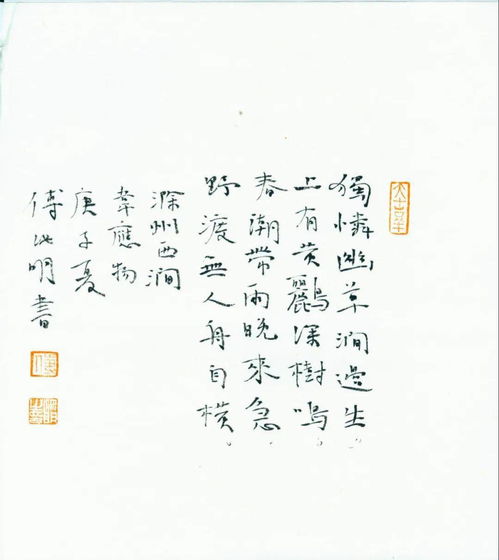 獨憐幽草澗邊生
上有黄鸝深樹鳴
春潮帶雨晚來急
野渡無人舟自横
滁州西澗
韋應物
庚子夏
傅此明書